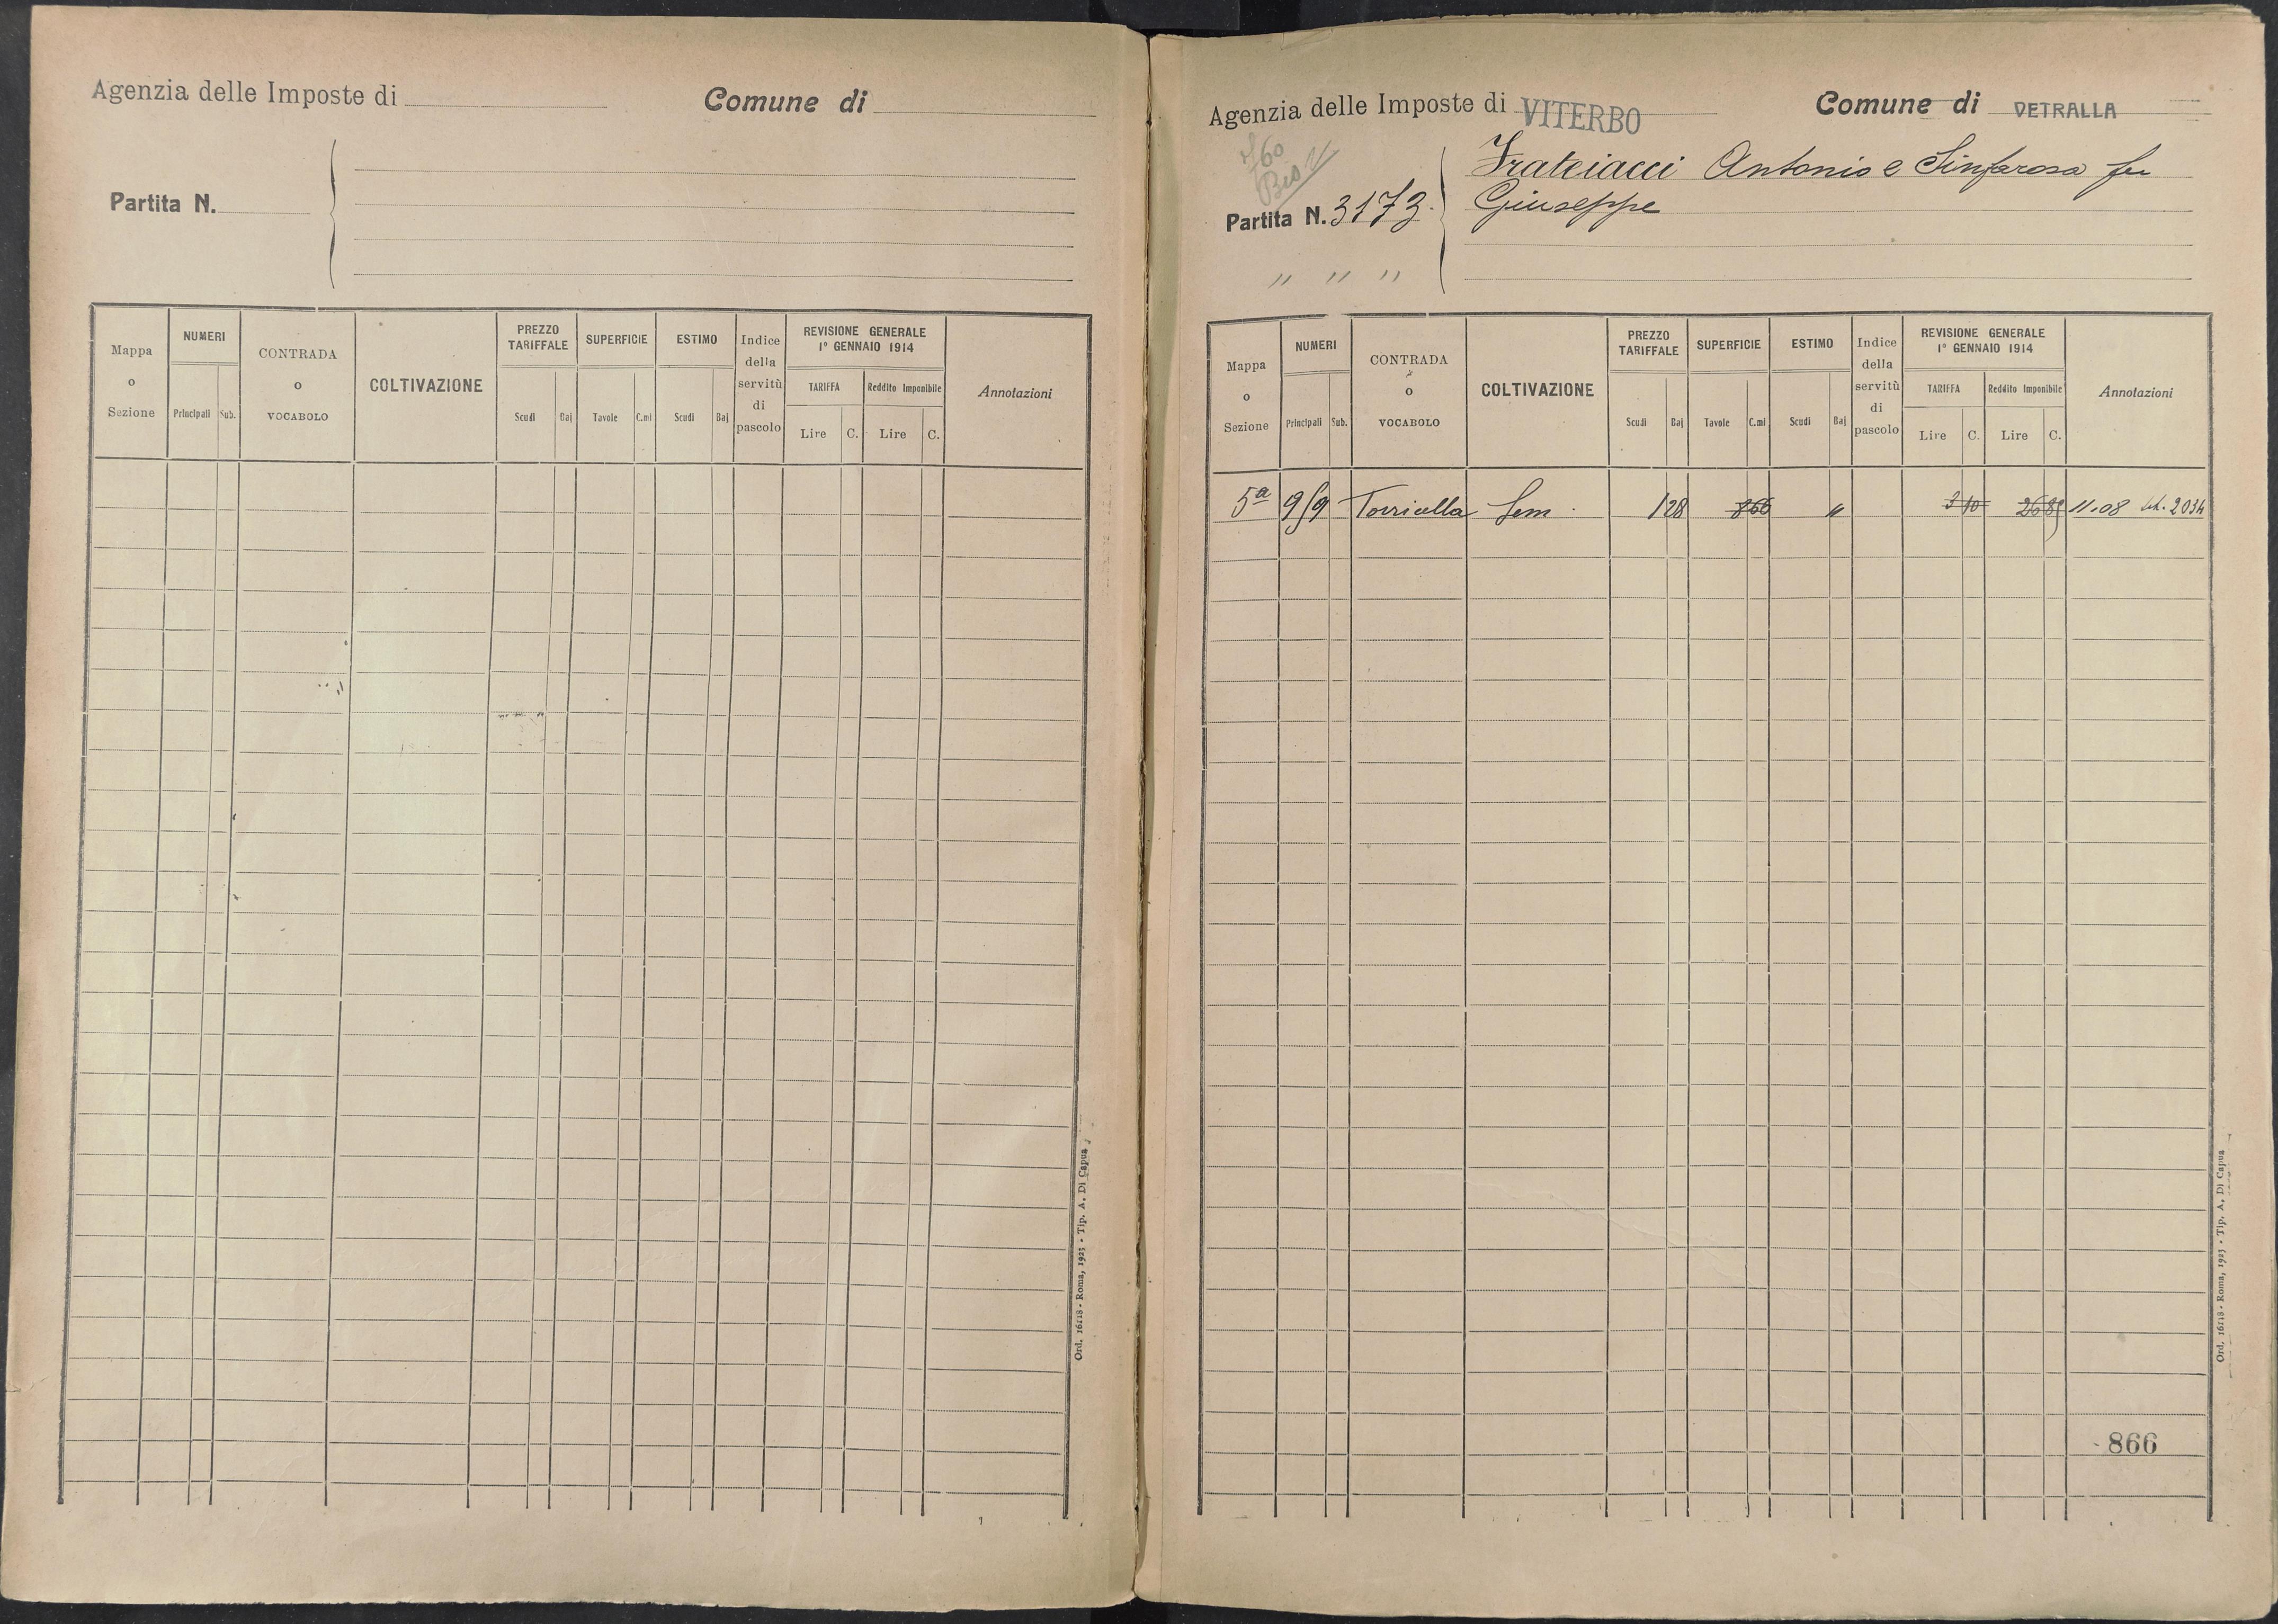 Agenzia delle Imposte di
Comune di
Partita N.
Mappa o Sezione
NUMERI
Principali
Sub.
CONTRADA o VOCABOLO
COLTIVAZIONE
PREZZO TARIFFALE
Scudi
Baj
SUPERFICIE
Tavole
C.mi
ESTIMO
Scudi
Baj
Indice della servitù di pascolo
REVISIONE GENERALE
1° GENNAIO 1914
TARIFFA
Lire
C.
Reddito Imponibile
Lire
C.
Annotazioni
Ord. 16118 - Roma, 1923 - Tip. A. Di Capua
Agenzia delle Imposte di VITERBO
Comune di VETRALLA
Partita N. 3173
Frateiacci Antonio e Sinfarosa fu
Giuseppe
" " "
Mappa o Sezione
NUMERI
Principali
Sub.
CONTRADA o VOCABOLO
COLTIVAZIONE
PREZZO TARIFFALE
Scudi
Baj
SUPERFICIE
Tavole
C.mi
ESTIMO
Scudi
Baj
Indice della servitù di pascolo
REVISIONE GENERALE
1° GENNAIO 1914
TARIFFA
Lire
C.
Reddito Imponibile
Lire
C.
Annotazioni
5ª 959 Torricella Sem. 1 28 866 " 3 10 26 85 11.08 2034
866
Ord. 16118 - Roma, 1923 - Tip. A. Di Capua